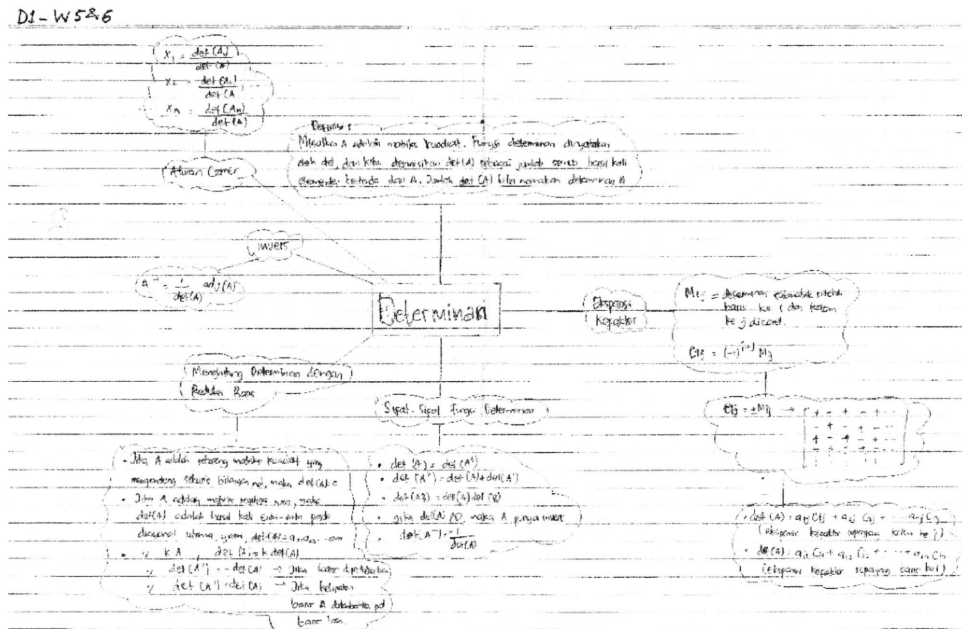 D1-W5&6
X₁ = det(A₁)/det(A)
det(A₂)/det(A
det(An)/det(A)
Definisi:
Misalkan A adalah matriks kuadrat. Fungsi determinan dinyatakan
oleh det, dan kita definisikan det(A) sebagai jumlah semua hasil kali
elementer bertanda dari A. Jumlah det(A) kita namakan determinan A
Aturan
invers
1/det(A) adj(A)
Determinan
Ekspansi
Kofaktor
Mij = determinan setelah
baris ke i dan kolom
ke j dicoret.
Cij = (-1)^i+j Mij
Menghitung Determinan dengan
Reduksi Baris
Sifat-Sifat fungsi Determinan
Cij = ±Mij →
+ - + - + ...
- + - + ...
+ - + - + ...
- + - + ...
• Jika A adalah sebarang matriks kuadrat yang
mengandung sebaris bilangan nol, maka det(A) =
• Jika A adalah matriks segitiga nxn, maka
det(A) adalah hasil kali pada
diagonal utama, yaitu, det(A) =
kA, = k det(A)
det(A') = -det(A) → Jika baris
det(A') = det(A) → Jika kelipatan
baris A pd
baris lain.
• det(A) = det(Aᵗ)
• det(AB) = det(A) det(B)
• jika det(A) ≠ 0, maka A punya invers
• = 1/det(A)
• det(A) = a₁j C₁j + a₂j C₂j + ...
(ekspansi kofaktor sepanjang kolom ke j)
• det(A) = ai₁ Ci₁ + ai₂ Ci₂ + ... + ain Cin
(ekspansi kofaktor sepanjang baris ke i)